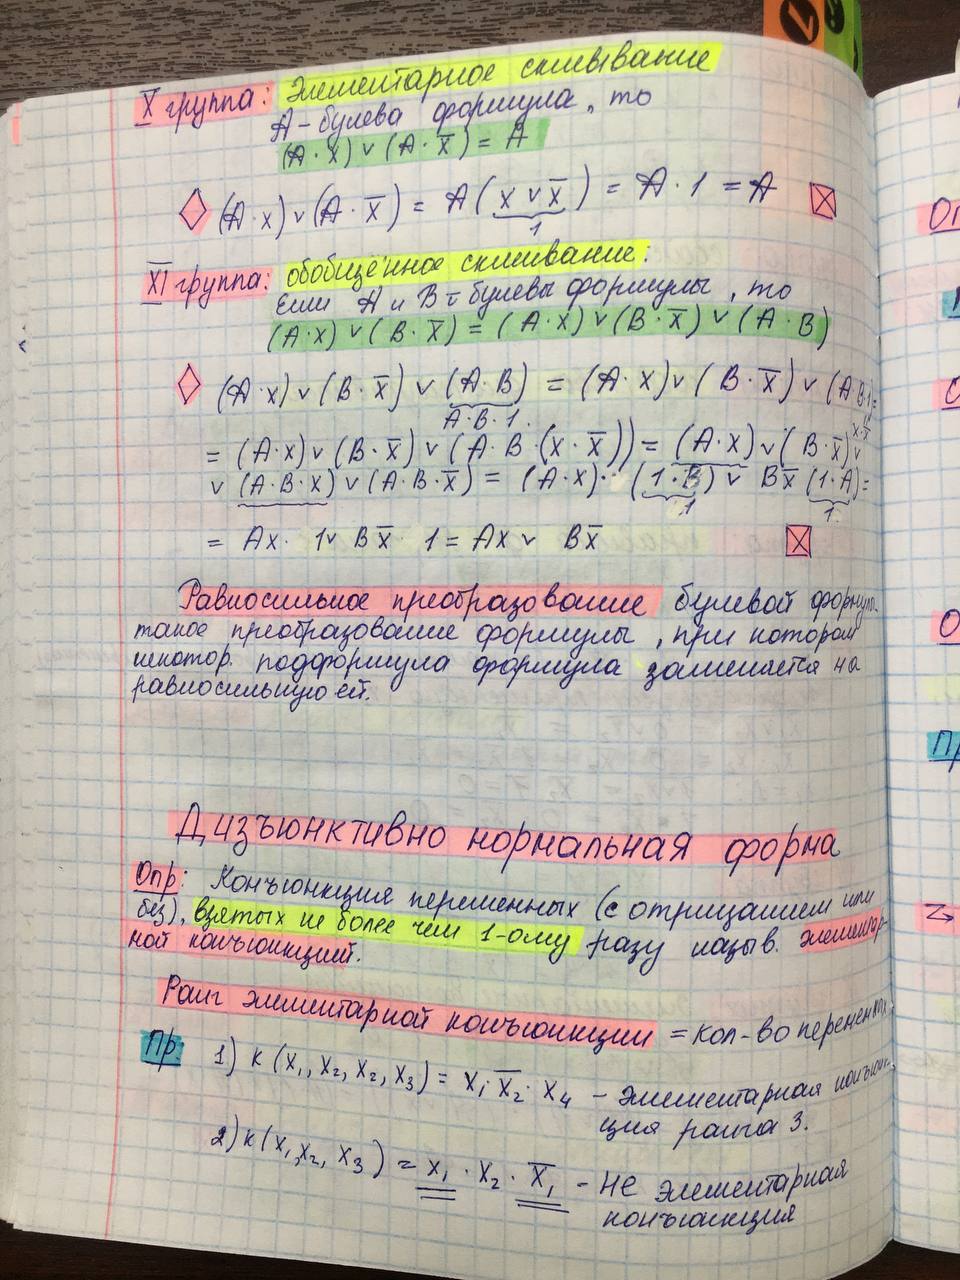 X группа: Элементарное склеивание
A - булева формула, то
(A · x) ∨ (A · x̅) = A
(A · x) ∨ (A · x̅) = A (x ∨ x̅) = A · 1 = A
1
XI группа: обобщённое склеивание:
Если A и B - булевы формулы, то
(A · x) ∨ (B · x̅) = (A · x) ∨ (B · x̅) ∨ (A · B)
(A · x) ∨ (B · x̅) ∨ (A · B) = (A · x) ∨ (B · x̅) ∨ (A B · 1) =
A · B · 1
= (A · x) ∨ (B · x̅) ∨ (A · B · (x · x̅)) = (A · x) ∨ (B · x̅) ∨
∨ (A · B · x) ∨ (A · B · x̅) = (A · x) · (1 · B) ∨ B x̅ (1 · A) =
1 1
= Ax · 1 ∨ B x̅ · 1 = Ax ∨ B x̅
Равносильное преобразование булевой формул
такое преобразование формулы, при котором
некотор. подформула формула заменяется на
равносильную ей.
Дизъюнктивно нормальная форма
Опр: Конъюнкция переменных (с отрицанием или
без), взятых не более чем 1-ому разу назыв. элементар-
ной конъюнкцией.
Ранг элементарной конъюнкции = кол-во переменных
Пр 1) K (x₁, x₂, x₂, x₃) = x₁ · x̅₂ · x₄ - элементарная конъюнк-
ция ранга 3.
2) K (x₁, x₂, x₃) = x₁ · x₂ · x̅₁ - не элементарная
конъюнкция
Оп
О
Пр